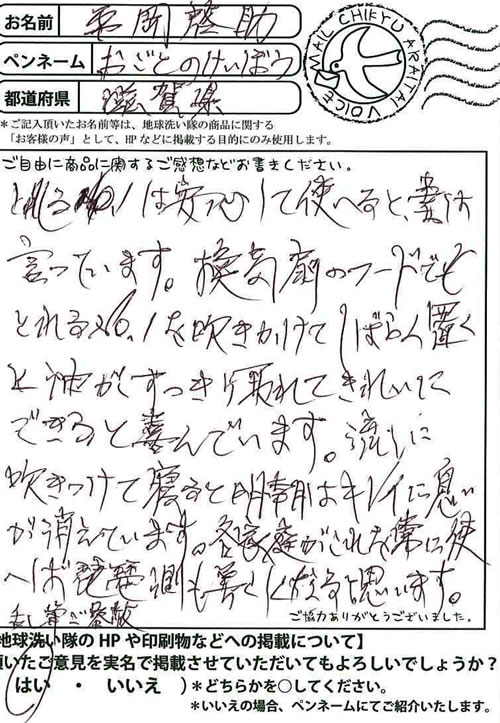 お名前 平岡啓助
ペンネーム おごとのけいぼう
都道府県 滋賀県
MAIL CHIKYU ARAITAI VOICE
*ご記入頂いたお名前等は、地球洗い隊の商品に関する
「お客様の声」として、HPなどに掲載する目的にのみ使用します。
ご自由に商品に関するご感想などお書きください。
とれるNo.1は安心して使へると、妻は
言っています。換気扇のフードでも
とれるNo.1を吹きかけてしばらく置く
と油がすっきり取れてきれいに
できると喜んでいます。流しに
吹きつけて寝ると明朝はキレイに臭い
が消えています。各家庭がこれを常に使
へば琵琶湖も美しくなると思います。
乱筆
ご協力ありがとうございました。
地球洗い隊のHPや印刷物などへの掲載について】
頂いたご意見を実名で掲載させていただいてもよろしいでしょうか？
はい ・ いいえ )*どちらかを○してください。
*いいえの場合、ペンネームにてご紹介いたします。